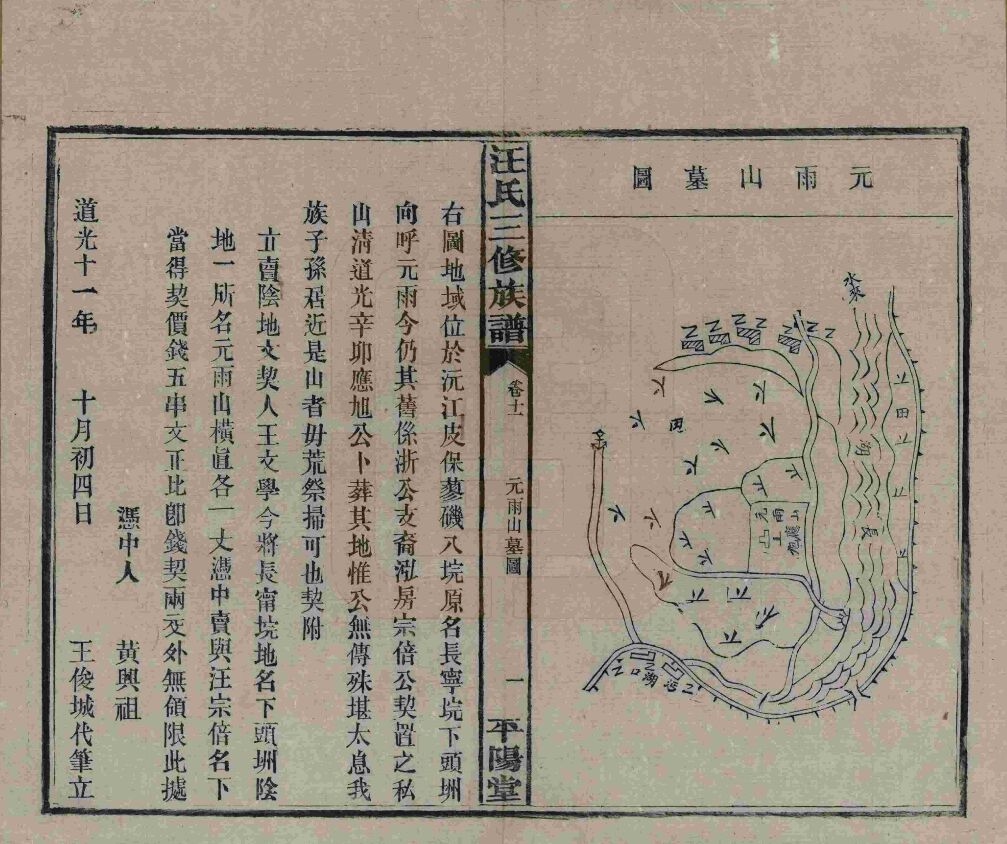 元雨山墓圖
水來
田
湖
長
元雨山
山
汪氏三修族譜
卷十一
元雨山墓圖
一
平陽堂
右圖地域位於沅江皮保蓼磯八垸原名長寧垸下頭坰
向呼元雨今仍其舊係浙公支裔泓房宗倍公契置之私
山清道光辛卯應旭公卜葬其地惟公無傳殊堪太息我
族子孫居近是山者毋荒祭掃可也契附
立賣陰地文契人王文學今將長甯垸地名下頭坰陰
地一所名元雨山橫直各一丈憑中賣與汪宗倍名下
當得契價錢五串文正比卽錢契兩交外無領限此據
憑中人　黃興祖
道光十一年　十月初四日　王俊城代筆立